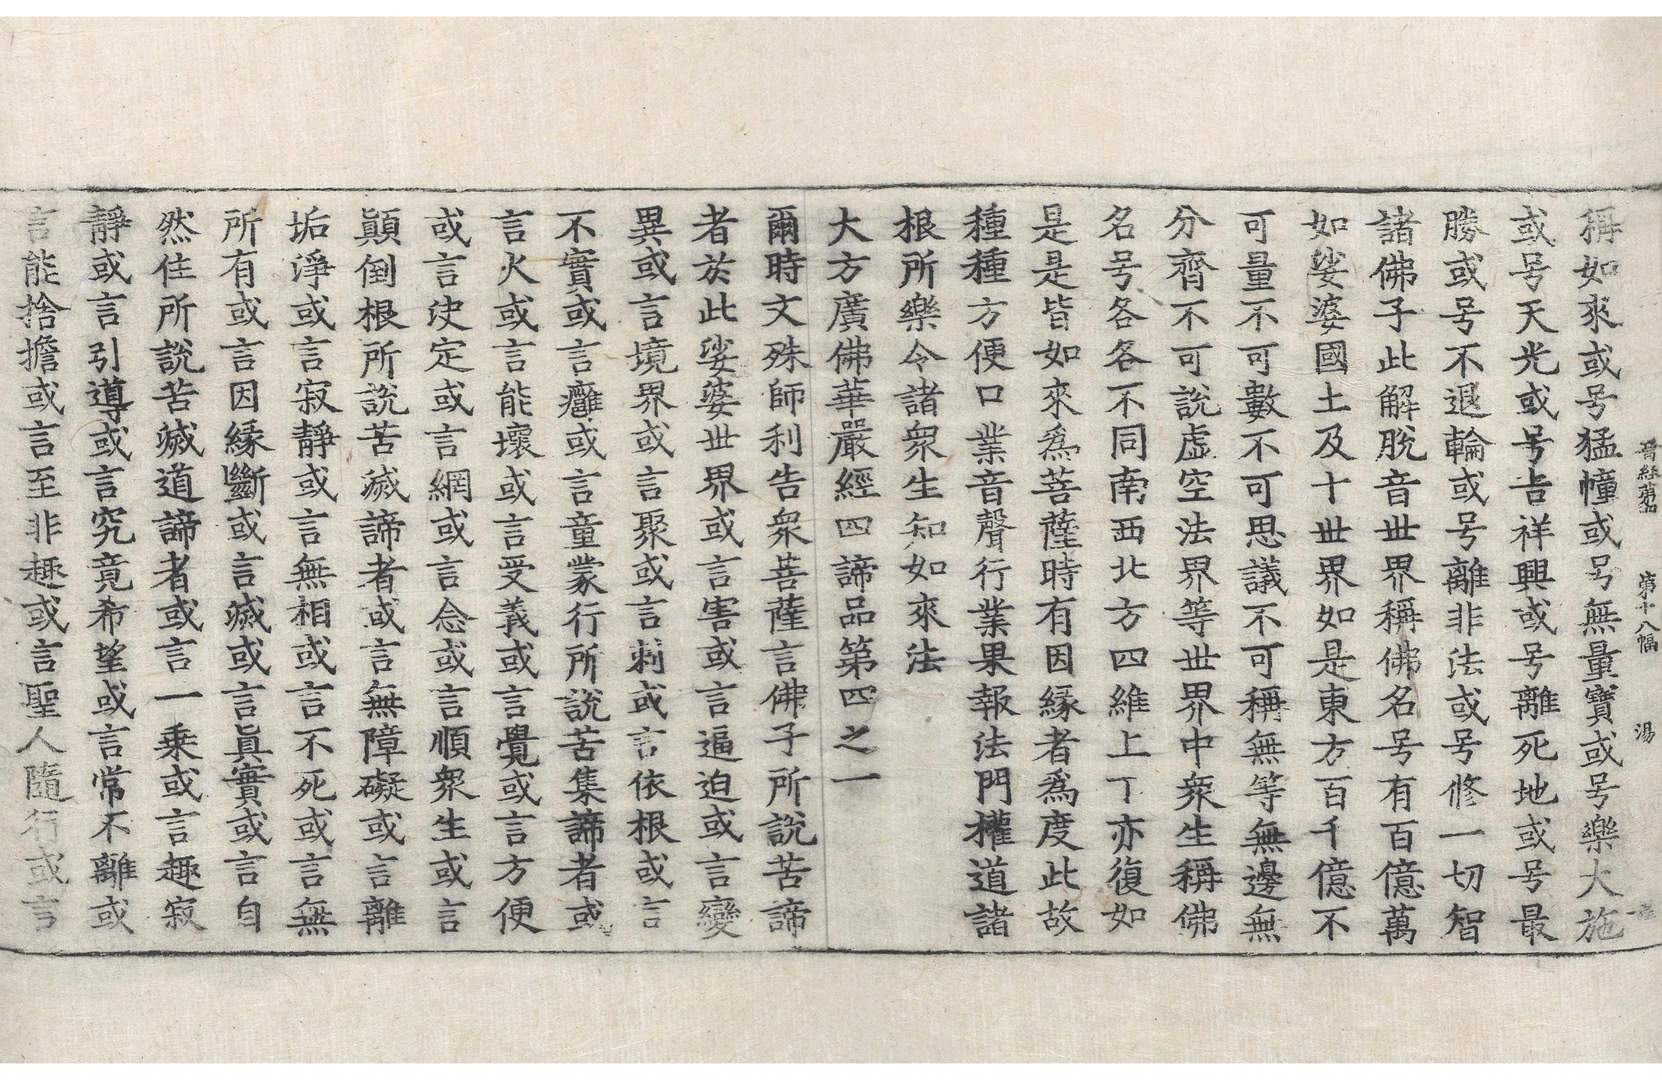 晉經第四 第十八幅 湯
稱如來或号猛幢或号無量寶或号樂大施
或号天光或号吉祥興或号離死地或号最
勝或号不退輪或号離非法或号修一切智
諸佛子此解脫音世界稱佛名号有百億萬
如娑婆國土及十世界如是東方百千億不
可量不可數不可思議不可稱無等無邊無
分齊不可說虛空法界等世界中衆生稱佛
名号各各不同南西北方四維上丁亦復如
是是皆如來爲菩薩時有因緣者爲度此故
種種方便口業音聲行業果報法門權道諸
根所樂令諸衆生知如來法
大方廣佛華嚴經四諦品第四之一
爾時文殊師利告衆菩薩言佛子所說苦諦
者於此娑婆世界或言害或言逼迫或言變
異或言境界或言聚或言刺或言依根或言
不實或言癰或言童蒙行所說苦集諦者或
言火或言能壞或言受義或言覺或言方便
或言決定或言網或言念或言順衆生或言
顚倒根所說苦滅諦者或言無障礙或言離
垢淨或言寂靜或言無相或言不死或言無
所有或言因緣斷或言滅或言眞實或言自
然住所說苦滅道諦者或言一乘或言趣寂
靜或言引導或言究竟希望或言常不離或
言能捨擔或言至非趣或言聖人隨行或言